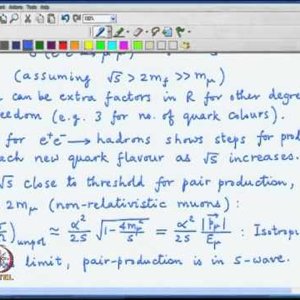 (assuming √s > 2m_f >> m_μ)
can be extra factors in R for other degre
edom (e.g. 3 for no. of quark colours).
for e⁺e⁻ → hadrons shows steps for pro
ach new quark flavour as √s increases.
√s close to threshold for pair production,
2m_μ (non-relativistic muons):
)unpol ≈ α²/2s √(1-4m_μ²/s) = α²/2s |p⃗_μ|/E_μ : Isotrop
limit, pair-production is in s-wave.